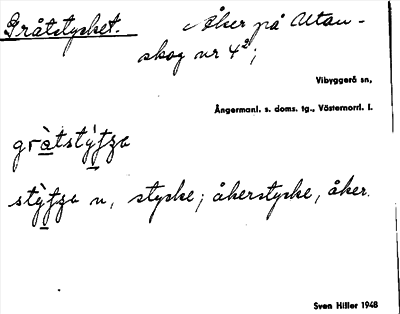 Gråtstycket. Åker på Utan-
skog nr 4²;
Vibyggerå sn,
Ångermanl. s. doms. tg., Västernorrl. l.
gràtstý̱ţʒa
stỳ̱ţʒa n, stycke; åkerstycke, åker.
Sven Hiller 1948